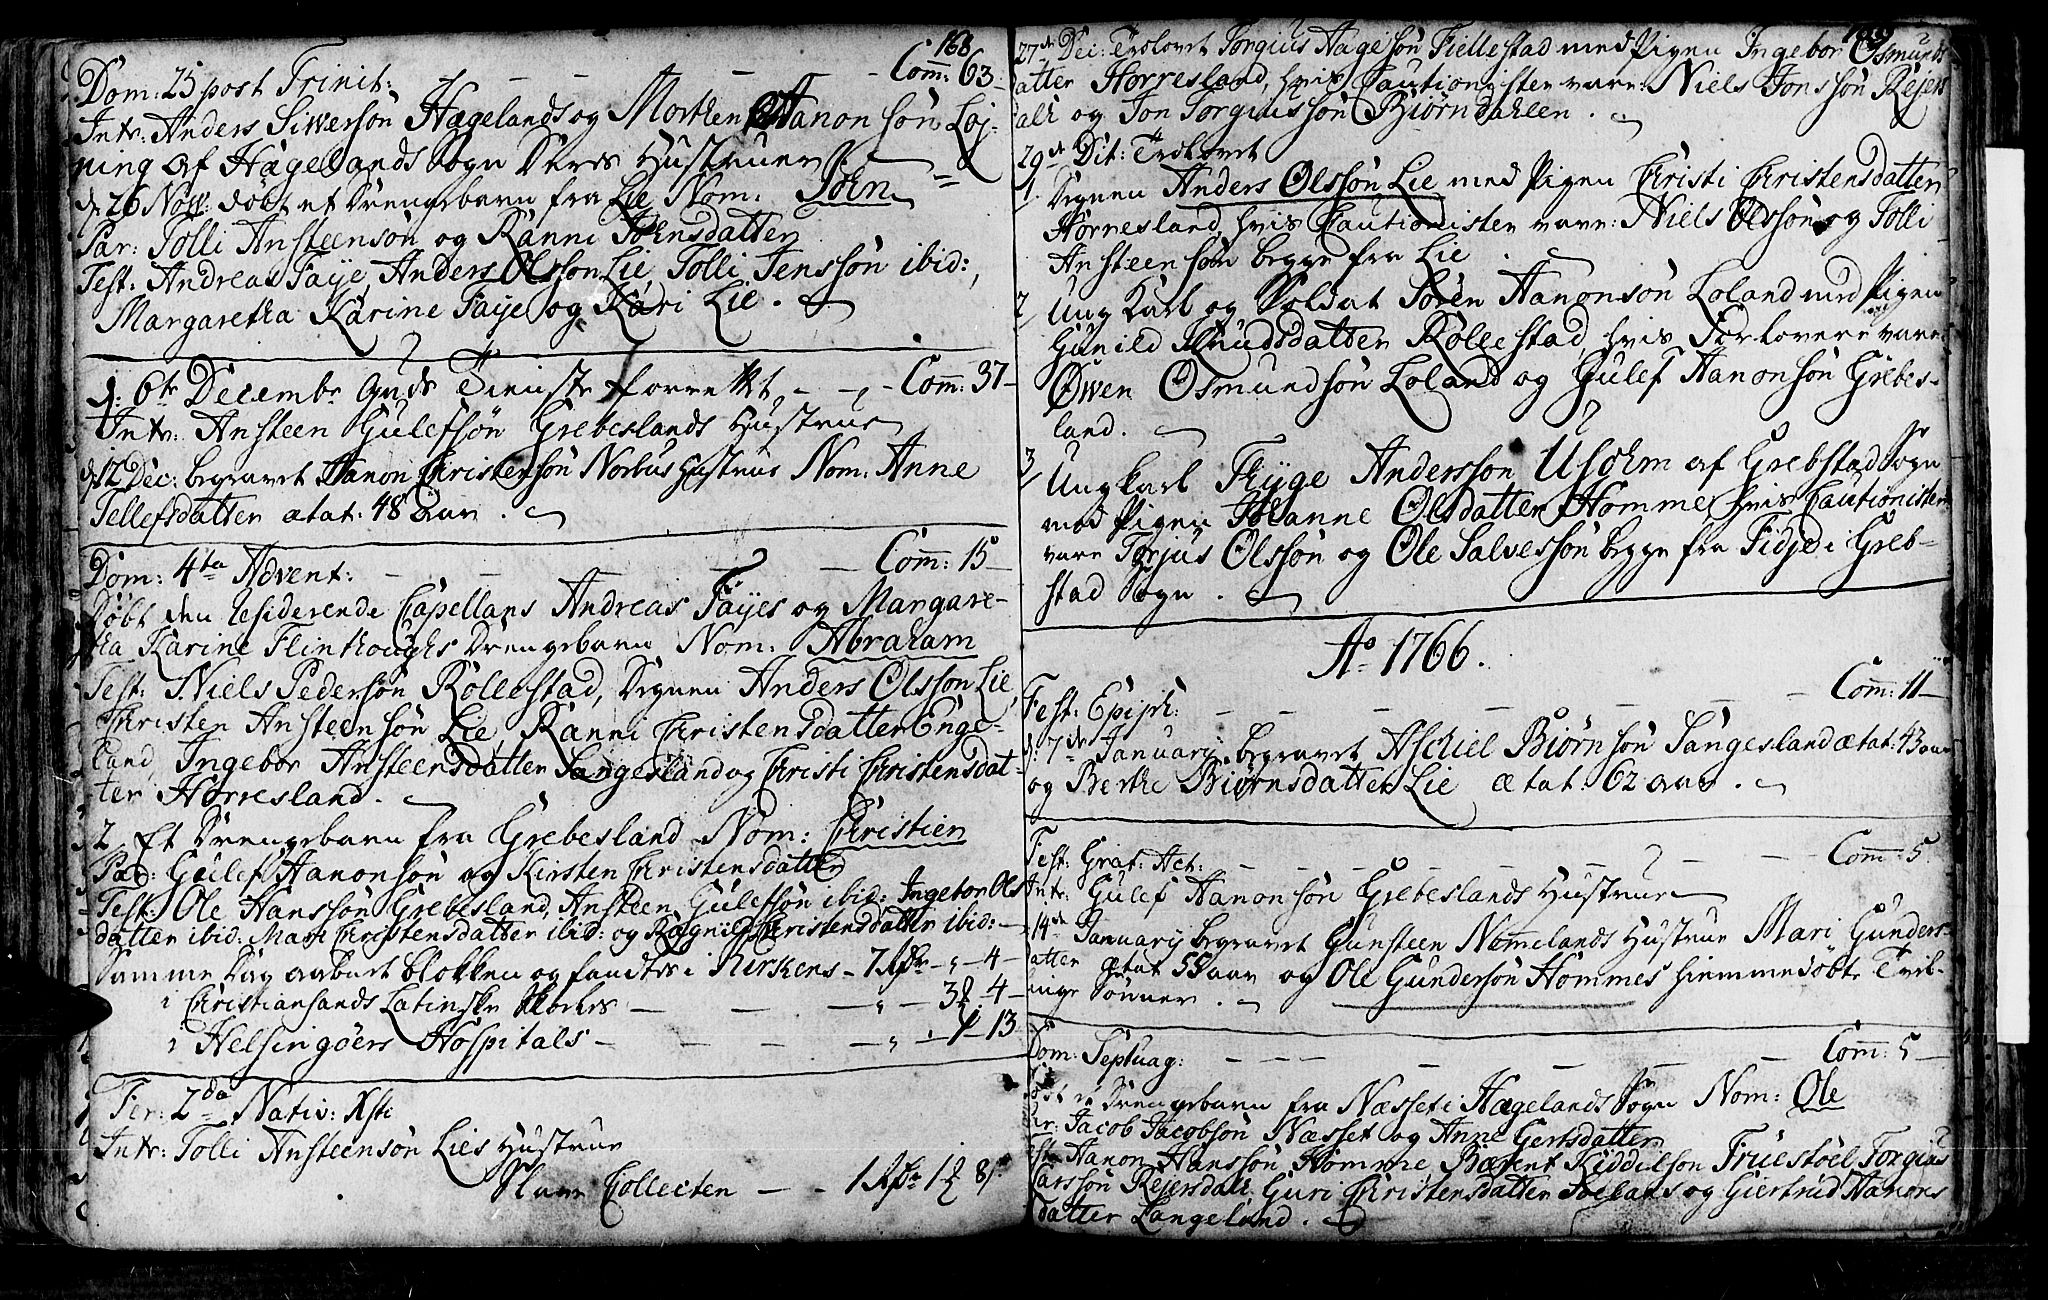 168
Dom: 25 post Trinit: — — — — Com̅: 63
Intr: Anders Siversøn Hægelands og Morthen Hanonsøn Løj-
ning af Hægelands Sogn Deres Hustruer
d. 26 Nov: døbt et Drengebarn fra Lie Nom: John
Par: Tolli Ansteensøn og Ranni Johnsdatter
Test: Andreas Faye, Anders Olsson Lie, Tolli Jenssøn ibid:,
Margaretha Karine Faye og Kari Lie.
d: 6te Decembr Guds Tieniste forrettet, — — Com̅: 37
Intr: Ansteen Gulefsøn Grebeslands Hustrue
d. 12 Dec: begravet Hanon Christensøn Norbus Hustrue Nom: Anne
Tellefsdatter ætat: 48 Aar.
Dom: 4ta Advent: — — — — Com̅: 15
Døbt den residerende Capellans Andreas Fayes og Margare-
tha Karine Flinthoughs Drengebarn Nom: Abraham
Test: Niels Pedersøn Røllestad, Dregnen Anders Olsson Lie,
Christen Ansteensøn Lie, Ranni Christensdatter Enge-
land, Ingebor Ansteensdatter Sangesland og Christi Christensdat-
ter Horresland.
2, Et Drengebarn fra Grebesland Nom: Christien
Par: Gulef Hanonsøn og Kirsten Christensdatter
Test: Ole Hanssøn Grebesland, Ansteen Gulefsøn ibid: Ingebor Ols
datter ibid: Mari Christensdatter ibid: og Ragnild Christensdatter ibid:
Samme Dag aabnet blokken og fandtes i Kirkens — 7 Rdr — „ — 4 —
i Christiansands Latinske Skoeles — — — „ — 3 4 —
i Helsingøers Hospitals — — — — „ — 1 — 13
Fer: 2da Nativ: Xsti
Intr: Tolli Ansteensøn Lies Hustrue
Slave Collecten — — 1 Rdr 1 8 s
27de Dec: Trolovet Torgius Aagesøn Fiellestad med Pigen Ingebor Osmunds
datter Horresland, hvis Cautionister vare: Niels Jonssøn Rejers
dalt og Jon Torgiussøn Biørndahlen.
29de Dit: Trolovet
1. Dregnen Anders Olssøn Lie med Pigen Christi Christensdatter
Horresland, hvis Cautionister vare: Niels Olssøn og Tolli
Ansteensøn begge fra Lie
2, Ung Karl og Soldat Søren Hanonsøn Loland med Pigen
Gunild Knudsdatter Røllestad, hvis Forlovere vare
Øwen Osmundsøn Loland og Gulef Hanonsøn Grebes-
land.
3, Ungkarl Thyge Andersson Usholm af Grebstad Sogn
med Pigen Johanne Olsdatter Homme hvis Cautionister
vare Torjus Olssøn og Ole Salvessøn begge fra Fidje i Greb-
stad Sogn.
Ao 1766.
Fest: Epiph: — — — — Com̅: 11 —
d: 7de January begravet Aschiel Biørnsøn Sangesland ætat: 43 aar
og Berthe Biørnsdatter Lie ætat: 62 aar.
Fest: Graf: Act: — — — — Com̅: 5
Intr: Gulef Hanonsøn Grebeslands Hustrue
14de January begravet Gunsteen Nommelands Hustrue Mari Gunders-
datter ætat 59 aar og Ole Gundersøn Hommes hiemmedøbte Tvil-
linge Sønner.
Dom: Septuag: — — — — Com̅: 5 —
Døbt et Drengebarn fra Næsset i Hægelands Sogn Nom: Ole
Par: Jacob Jacobsøn Næsset og Anne Gertsdatter
Test: Hanon Hanssøn Homme, Bærent Kiddilsøn Fruestøel, Torgius
Larssøn Rejersdalt, Guri Christensdatter og Giertrud Hanons
datter Langeland.